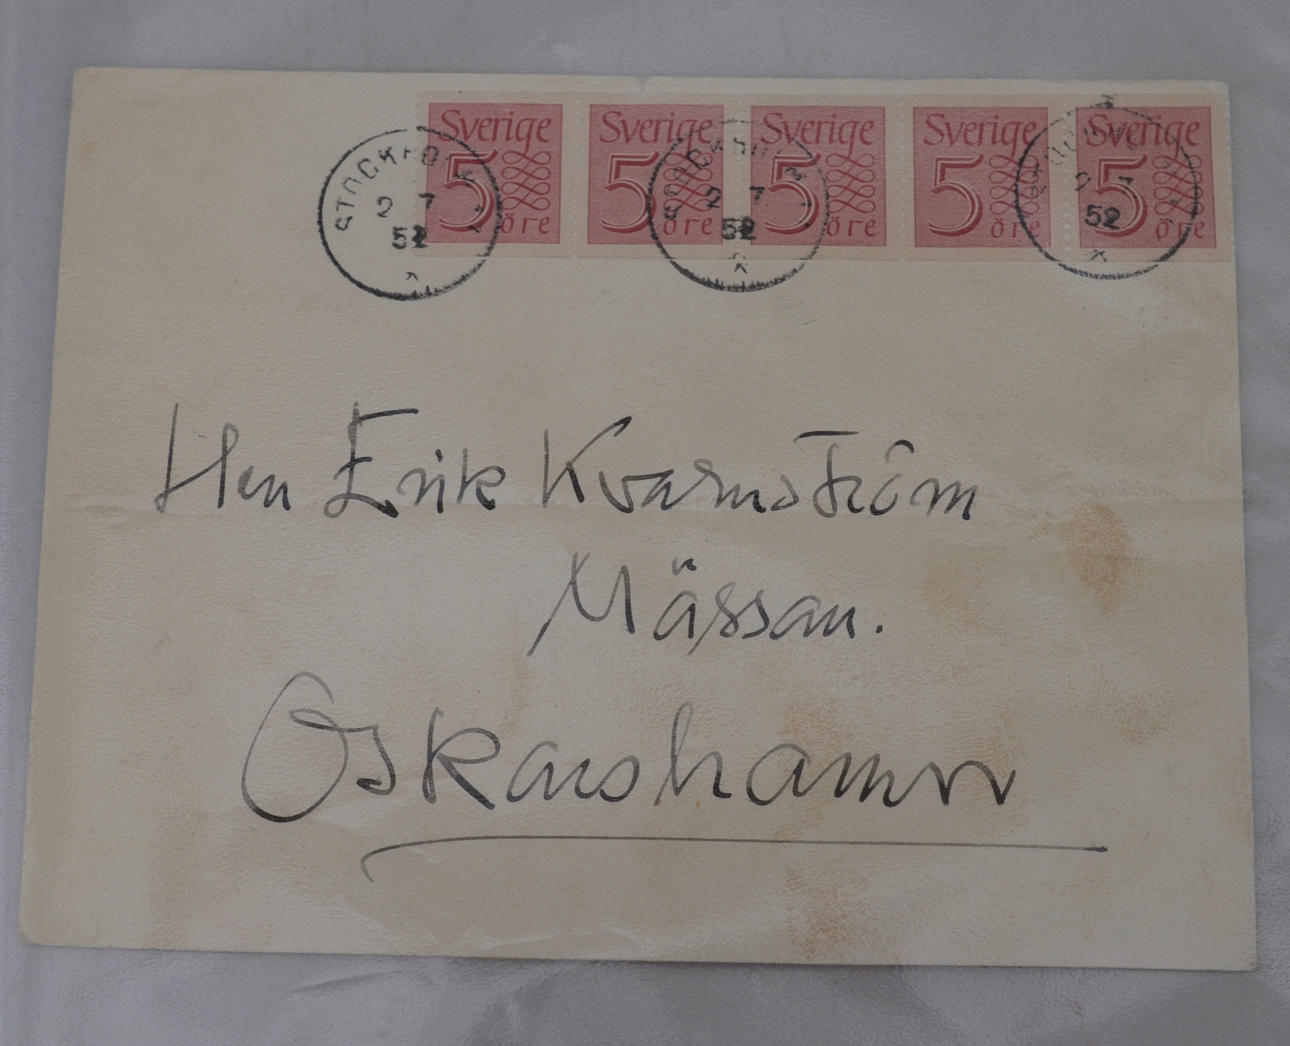 Sverige Sverige Sverige Sverige Sverige
5 5 5 5 5
öre öre öre öre öre
STOCKHOLM
2 7
52
2 7
52
2 7
52
Herr Erik Kvarnström
Mässan.
Oskarshamn